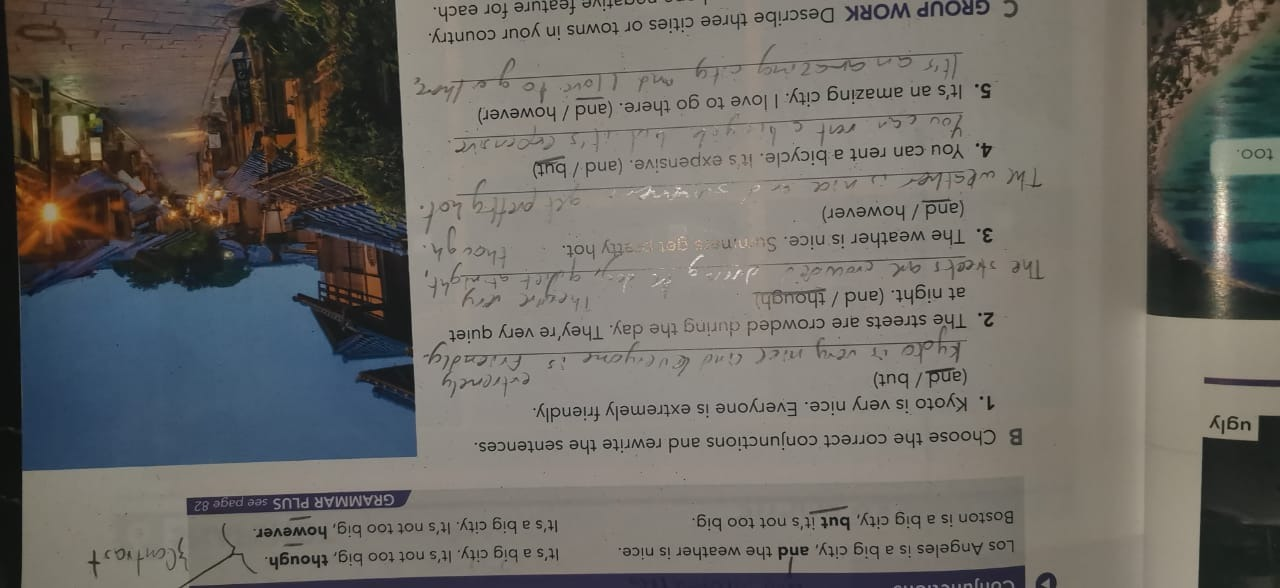 Conjunctions
Los Angeles is a big city, and the weather is nice.
Boston is a big city, but it's not too big.
It's a big city. It's not too big, though.
It's a big city. It's not too big, however.
contrast
GRAMMAR PLUS see page 82
B Choose the correct conjunctions and rewrite the sentences.
1. Kyoto is very nice. Everyone is extremely friendly.
(and / but)
extremely
Kyoto is very nice and everyone is friendly.
2. The streets are crowded during the day. They're very quiet
at night. (and / though)
They're very quiet at night,
The streets are crowded during the day
though.
3. The weather is nice. Summers get pretty hot.
(and / however)
The weather is nice and summers get pretty hot.
4. You can rent a bicycle. It's expensive. (and / but)
You can rent a bicycle but it's expensive.
5. It's an amazing city. I love to go there. (and / however)
It's an amazing city and I love to go there
C GROUP WORK Describe three cities or towns in your country.
negative feature for each.
ugly
too.